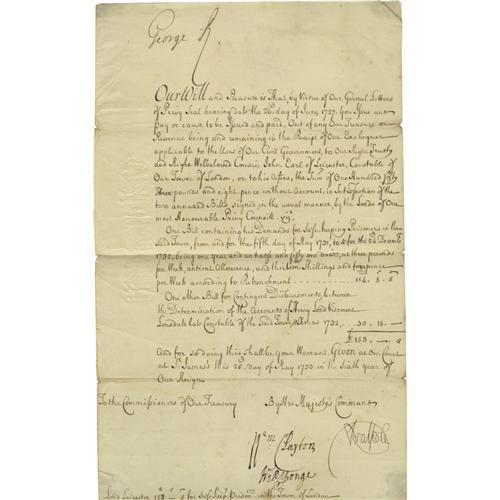 George R
Our Will and Pleasure is That, by Virtue of Our General Letters
of Privy Seal bearing date the 26. day of June 1727. You Issue and
Pay or cause to be Issued and paid, Out of any Our Treasure or
Revenue being and remaining in the Receipt of Our Exchequer
applicable to the Uses of Our Civil Government, to Our Right Trusty
and Right Welbeloved Cousin John Earl of Leicester, Constable of
Our Tower of London, or to his Assns, the Sum of One Hundred fifty
three pounds and eight pence without Account, in Satisfaction of the
two annexed Bills, signed in the usual manner, by the Lords of Our
most Honourable Privy Councill. vizt.
One Bill containing his Demands for Safe keeping Prisoners in the
Said Tower, from and for the fifth day of May 1731, to & for the 24 Decemr.
1732, being one year and an half and fifty one days, at three pounds
per Week, antient Allowance, and thirteen Shillings and fourpence
per Week according to Retrenchment
One other Bill for Contingent Disbursements, between
the Determination of the Accounts of Henry Lord Viscount
Lonsdale late Constable of the Said Tower, & Xmas 1732 .. 38. 15. —
£153. —. 8
And for so doing this shall be Your Warrant. Given at Our Court
at St. James's this 26. day of May 1733 in the Sixth Year of
Our Reign.
To the Commissioners of Our Treasury By His Majesty's Command
RWalpole
Wm Clayton
Wm Yonge
Lord Leicester 153. —. 8 for Safe keeping Prisonrs. in the Tower of London